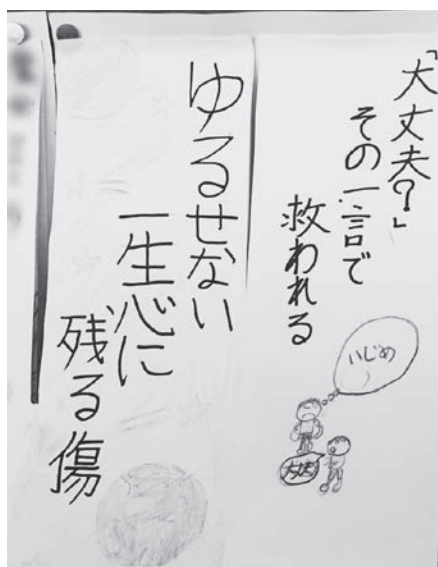 「大丈夫?」
その一言で
救われる
いじめ
大丈夫
ゆるせない
一生心に
残る傷